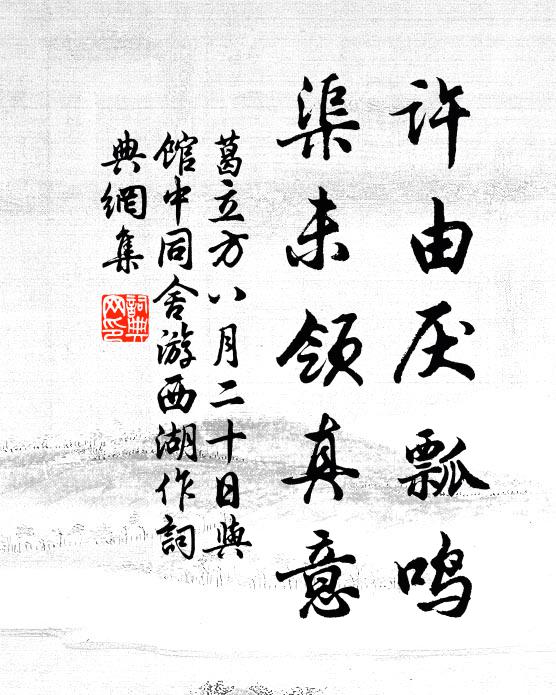 许由厌瓢鸣
渠未领真意
葛立方八月二十日与
馆中同舍游西湖作词
典網集
詞典網印